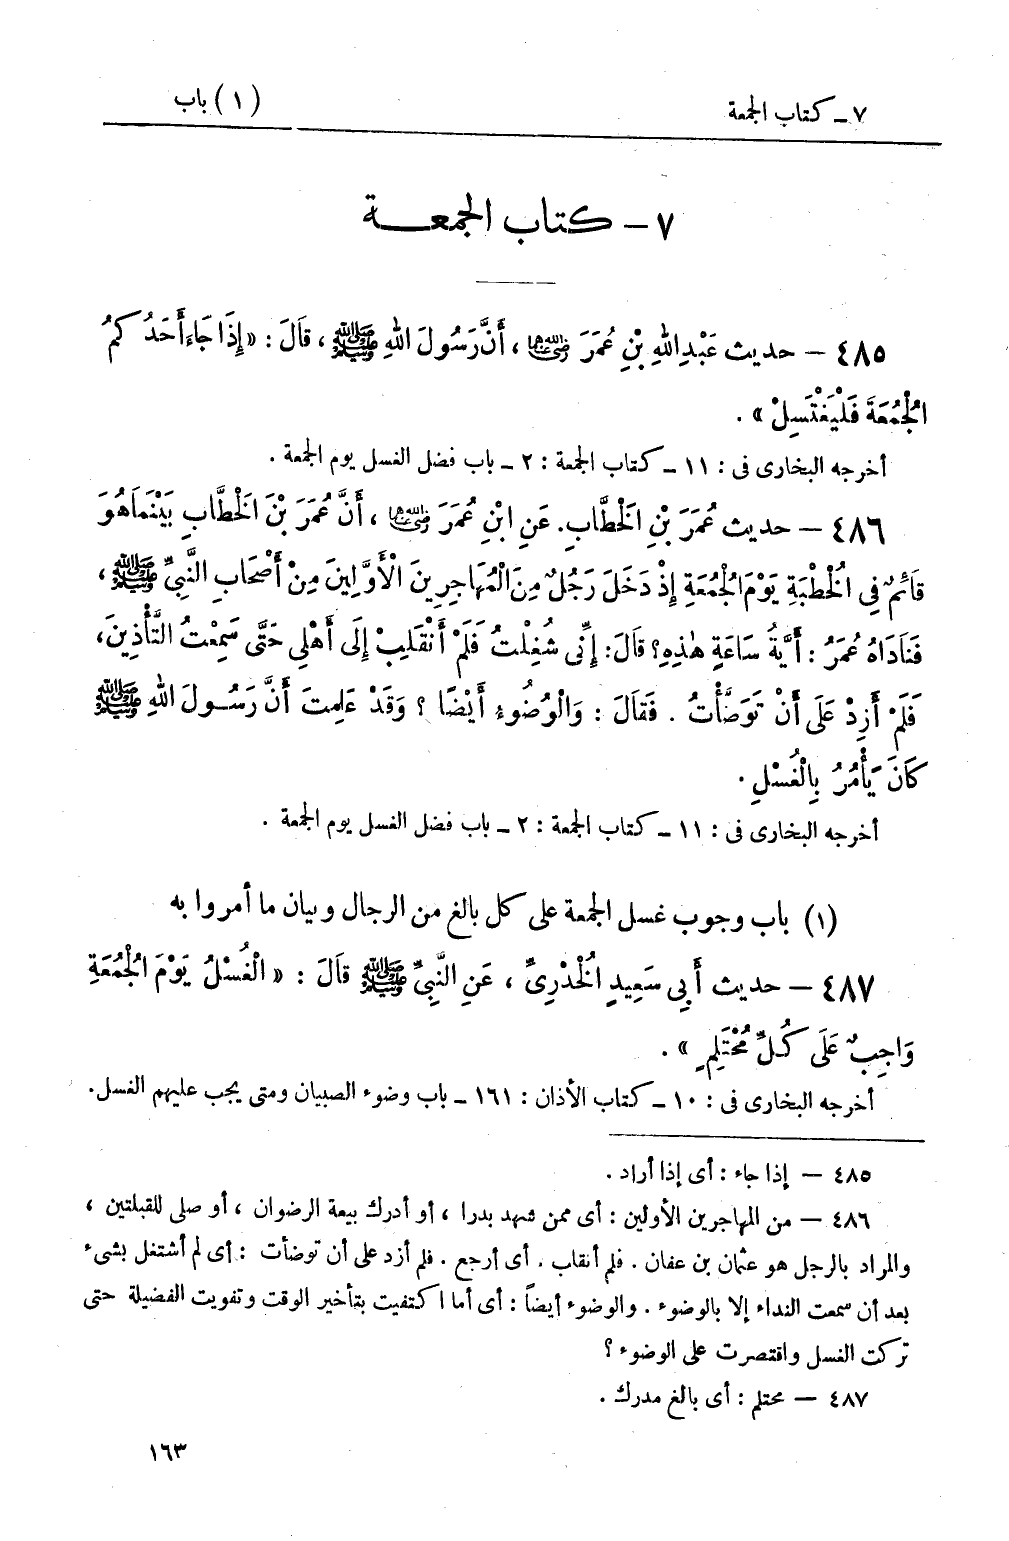 ٧ – كتاب الجمعة
(١) باب
٧ – كتاب الجمعـــة
٤٨٥ – حديث عَبْدِ اللهِ بْنِ عُمَرَ رضي الله عنهما ، أَنَّ رَسُولَ اللهِ ﷺ ، قَالَ : « إِذَا جَاءَ أَحَدُكُمُ
الْجُمُعَةَ فَلْيَغْتَسِلْ » .
أخرجه البخارى فى : ١١ – كتاب الجمعة : ٢ – باب فضل الغسل يوم الجمعة .
٤٨٦ – حديث عُمَرَ بْنِ الْخَطَّابِ. عَنِ ابْنِ عُمَرَ رضي الله عنهما ، أَنَّ عُمَرَ بْنَ الْخَطَّابِ بَيْنَمَا هُوَ
قَائِمٌ فِى الْخُطْبَةِ يَوْمَ الْجُمُعَةِ إِذْ دَخَلَ رَجُلٌ مِنَ الْمُهَاجِرِينَ الْأَوَّلِينَ مِنْ أَصْحَابِ النَّبِىِّ ﷺ ،
فَنَادَاهُ عُمَرُ : أَيَّةُ سَاعَةٍ هٰذِهِ ؟ قَالَ: إِنِّى شُغِلْتُ فَلَمْ أَنْقَلِبْ إِلَى أَهْلِى حَتَّى سَمِعْتُ التَّأْذِينَ،
فَلَمْ أَزِدْ عَلَى أَنْ تَوَضَّأْتُ . فَقَالَ : وَالْوُضُوءُ أَيْضًا ؟ وَقَدْ عَلِمْتَ أَنَّ رَسُـولَ اللهِ ﷺ
كَانَ يَأْمُرُ بِالْغُسْلِ .
أخرجه البخارى فى : ١١ – كتاب الجمعة : ٢ – باب فضل الغسل يوم الجمعة .
(١) باب وجوب غسل الجمعة على كل بالغ من الرجال وبيان ما أمروا به
٤٨٧ – حديث أَبِى سَعِيدٍ الْخُدْرِىِّ ، عَنِ النَّبِىِّ ﷺ قَالَ : « الْغُسْلُ يَوْمَ الْجُمُعَةِ
وَاجِبٌ عَلَى كُلِّ مُحْتَلِمٍ » .
أخرجه البخارى فى : ١٠ – كتاب الأذان : ١٦١ – باب وضوء الصبيان ومتى يجب عليهم الغسل.
٤٨٥ – إذا جاء : أى إذا أراد .
٤٨٦ – من المهاجرين الأولين : أى ممن شهد بدرا ، أو أدرك بيعة الرضوان ، أو صلى للقبلتين ،
والمراد بالرجل هو عثمان بن عفان . فلم أنقلب . أى أرجع . فلم أزد على أن توضأت : أى لم أشتغل بشىء
بعد أن سمعت النداء إلا بالوضوء . والوضوء أيضاً : أى أما اكتفيت بتأخير الوقت وتفويت الفضيلة حتى
تركت الغسل واقتصرت على الوضوء ؟
٤٨٧ – محتلم : أى بالغ مدرك .
١٦٣